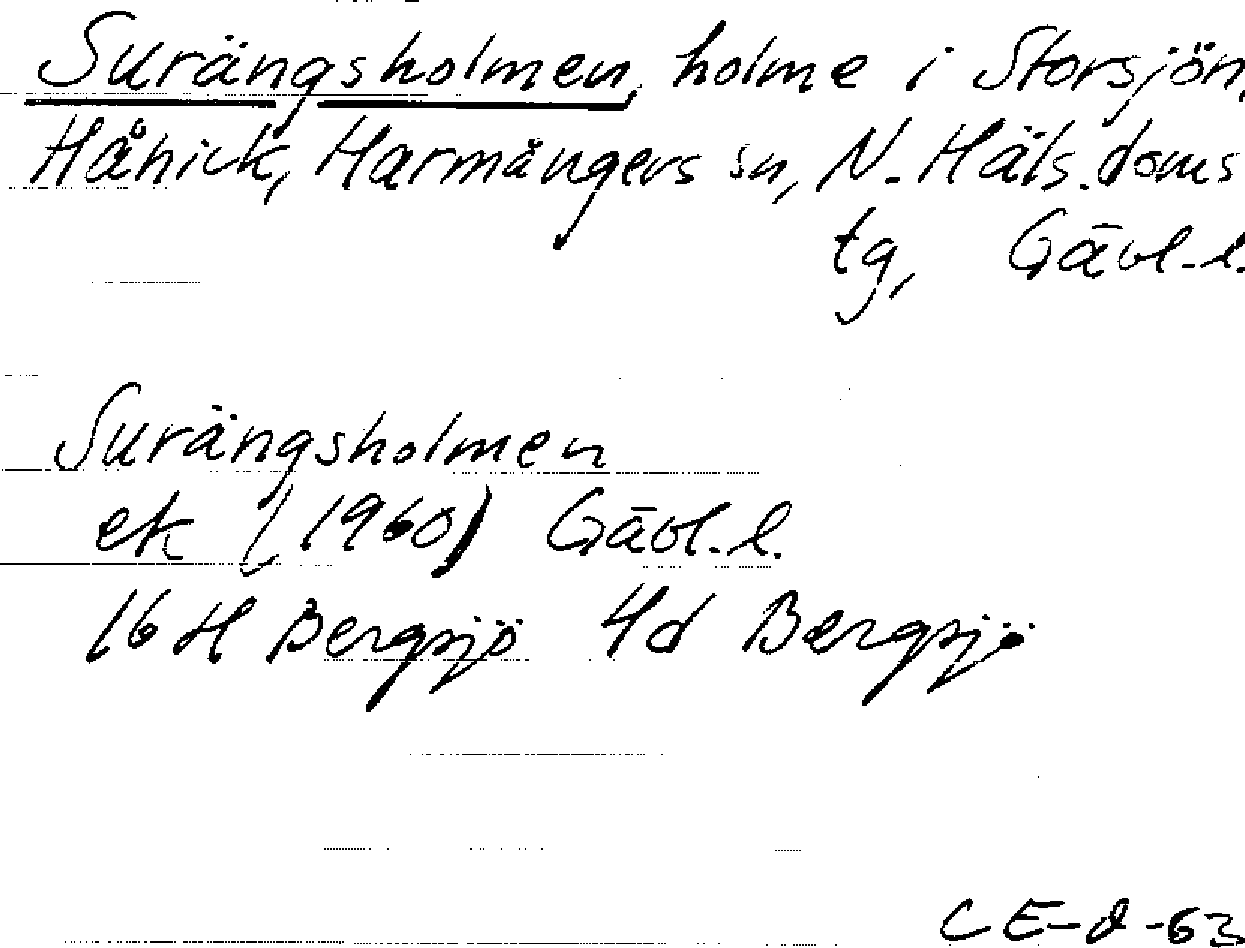 Surängsholmen, holme i Storsjön,
Hånick, Harmångers sn, N. Häls. doms
tg, Gävl.l.
Surängsholmen
ek (1960) Gävl.l.
16 H Bergsjö 4d Bergsjö
CE-d-63